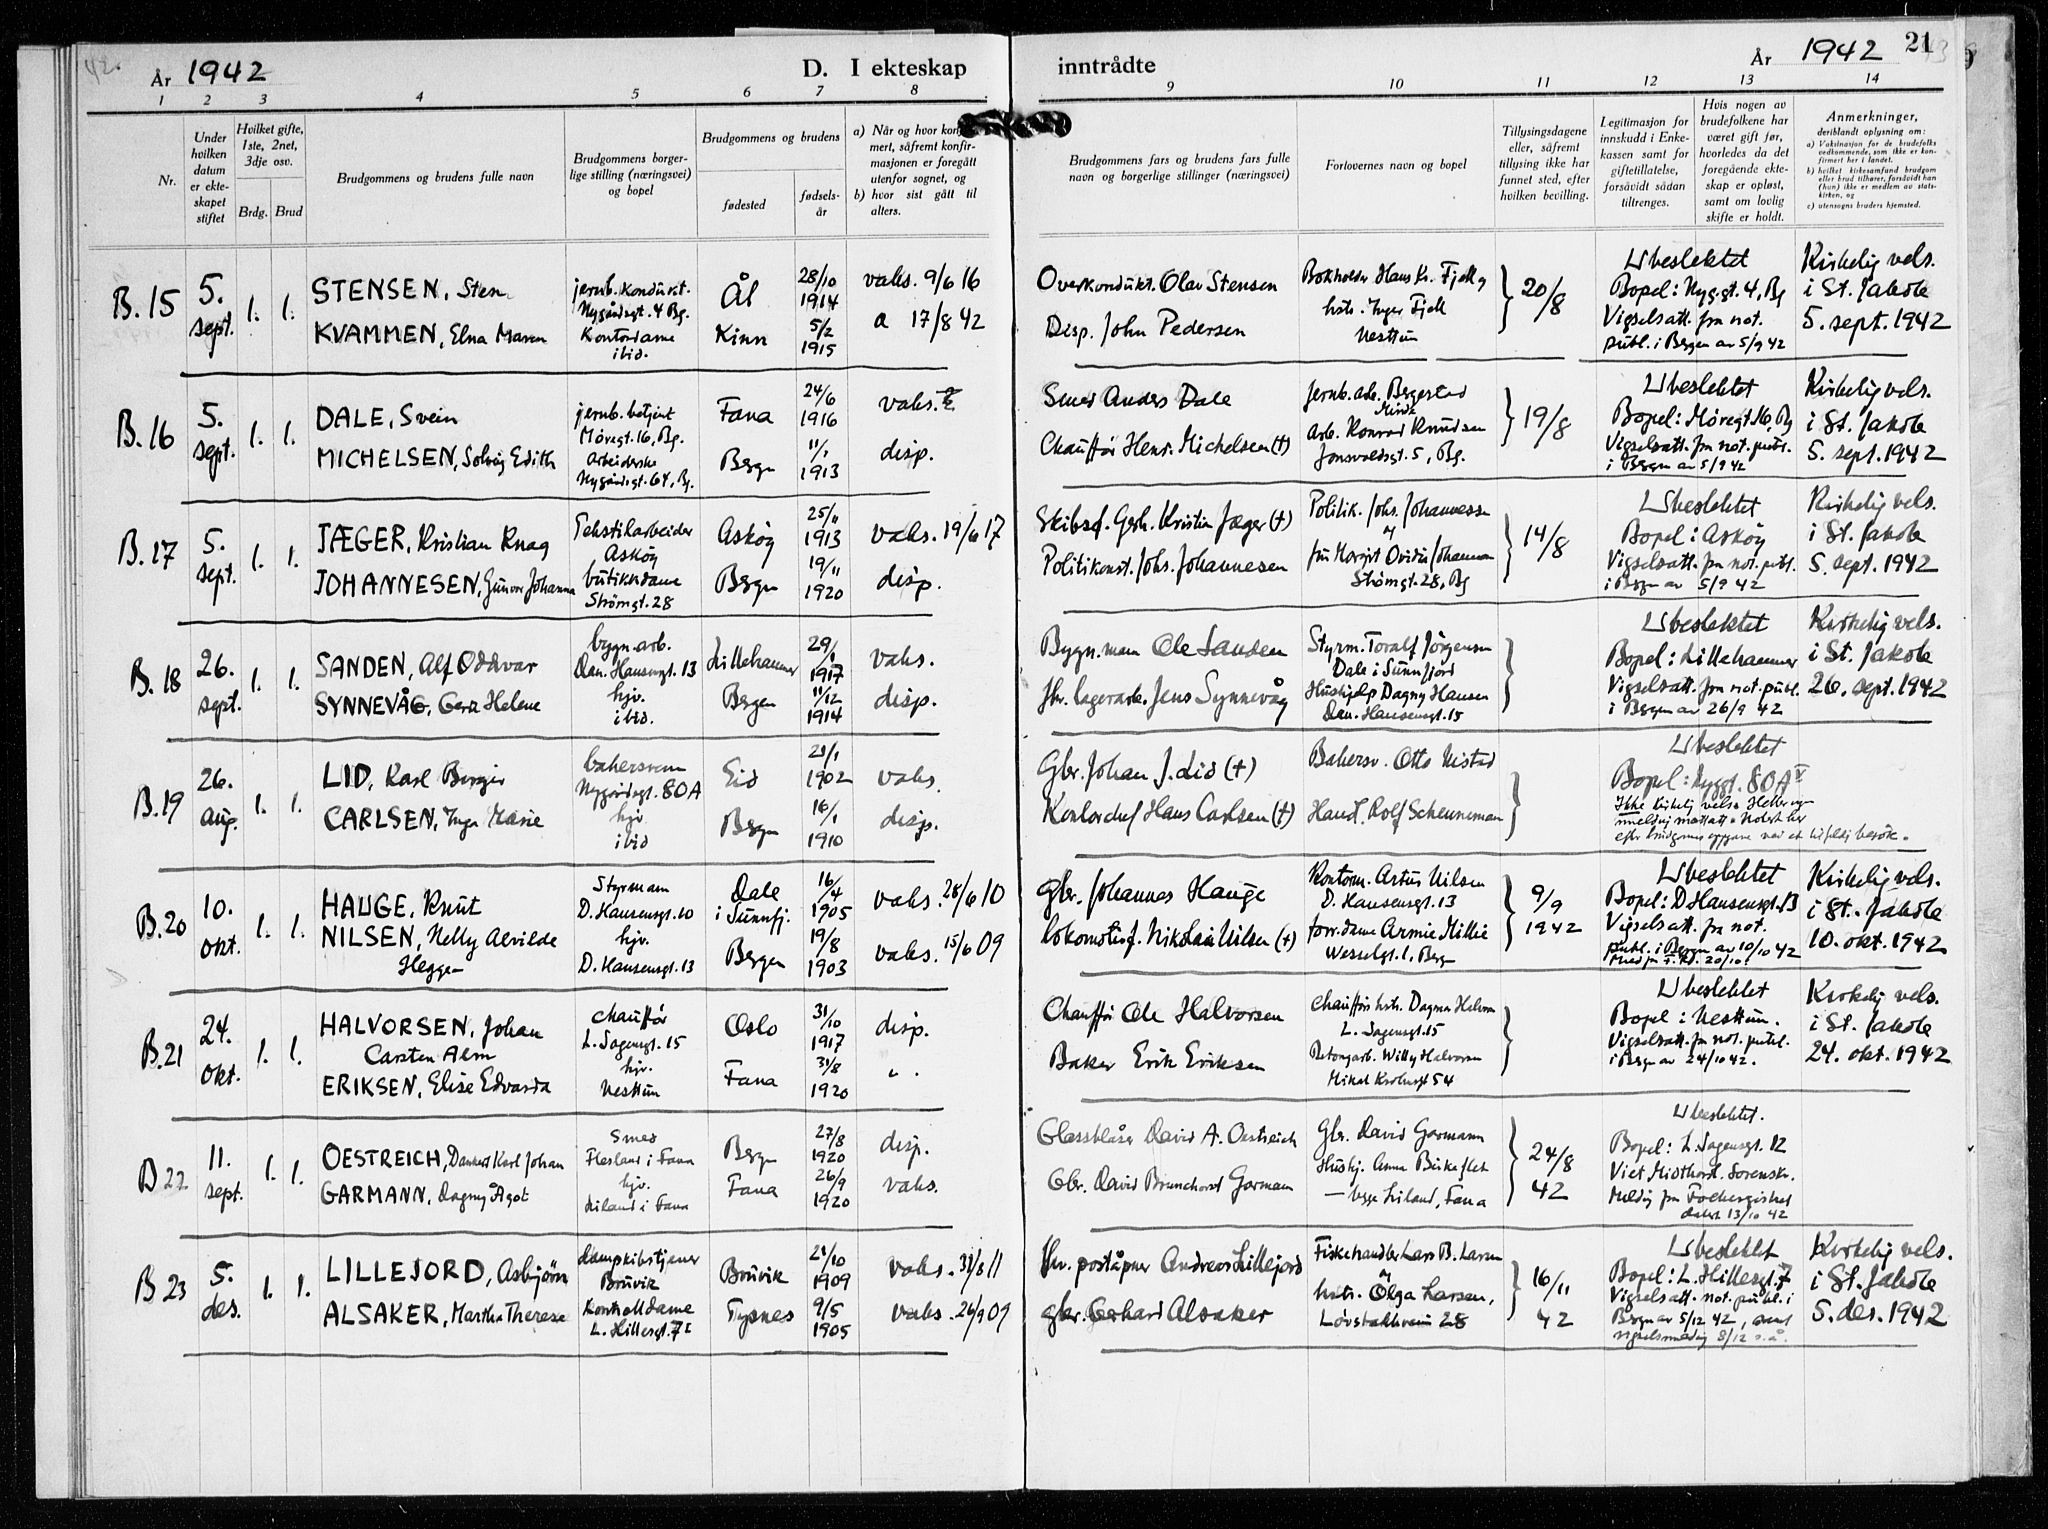 År 1942
D. I ekteskap
1 2 3 4 5 6 7 8
Nr.
Under hvilken datum er ekteskapet stiftet
Hvilket gifte, 1ste, 2net, 3dje osv.
Brdg. Brud
Brudgommens og brudens fulle navn
Brudgommens borgerlige stilling (næringsvei) og bopel
Brudgommens og brudens
fødested
fødselsår
b) hvor sist gått til alters.
inntrådte
År 1942
21
9 10 11 12 13 14
Brudgommens fars og brudens fars fulle navn og borgerlige stillinger (næringsvei)
Forlovernes navn og bopel
Tillysingsdagene eller, såfremt tillysing ikke har funnet sted, efter hvilken bevilling.
Legitimasjon for innskudd i Enkekassen samt for giftetillatelse, forsåvidt sådan tiltrenges.
Hvis nogen av brudefolkene har været gift før, hvorledes da det foregående ekteskap er opløst, samt om lovlig skifte er holdt.
Anmerkninger,
deriblandt oplysning om:
B. 15
5. sept.
1. 1.
STENSEN, Sten
jernb. kondukt.
Nygårdsgt. 4 Bg.
Ål
28/10 1914
vaks. 9/6 16
KVAMMEN, Elna Maren
Kontordame
ibid.
Kinn
5/2 1915
a 17/8 42
Overkondukt. Olav Stensen
Disp. John Pedersen
Bokholder Hans Kr. Fjell og
hstr. Inger Fjell
Nesttun
20/8
Ubeslektet
Bopel: Nyg.gt. 4, Bg
Vigselsatt. fra not.
publ. i Bergen av 5/9 42
Kirkelig vels.
i St. Jakob
5. sept. 1942
B. 16
5. sept.
1. 1.
DALE, Svein
jernb. betjent
Møregt. 16, Bg.
Fana
24/6 1916
vaks.
MICHELSEN, Solveig Edith
Arbeiderske
Nygårdsgt. 64, Bg.
Bergen
11/1 1913
disp.
Smed Anders Dale
Chauffør Henr. Michelsen (†)
Jernb. arb. Bergestad
Minde
Arb. Konrad Knudsen
Jonsvoldsgt. 5, Bg.
19/8
Ubeslektet
Bopel: Møregt 16, Bg
Vigselsatt. fra not. publ.
i Bergen av 5/9 42
Kirkelig vels.
i St. Jakob
5. sept. 1942
B. 17
5. sept.
1. 1.
JÆGER, Kristian Knag
Tekstilarbeider
Askøy
Askøy
25/11 1913
vaks. 19/6 17
JOHANNESEN, Gunvor Johanna
butikkdame
Strømgt. 28
Bergen
19/11 1920
disp.
Skibsf. Gerh. Kristian Jæger (†)
Politikonst. Johs. Johannesen
Politik. Johs. Johannessen
og
fru Margit Ovidia Johannesen
Strømgt. 28, Bg
14/8
Ubeslektet
Bopel: Askøy
Vigselsatt. fra not. publ.
i Bergen av 5/9 42
Kirkelig vels.
i St. Jakob
5. sept. 1942
B. 18
26. sept.
1. 1.
SANDEN, Alf Oddvar
bygn. arb.
Dan. Hansensgt. 13
Lillehammer
29/1 1917
vaks.
SYNNEVÅG, Gerd Helene
hjv.
ibid.
Bergen
11/12 1914
disp.
Bygn. mann Ole Sanden
fhv. lagerarb. Jens Synnevåg
Styrm. Toralf Jørgensen
Dale i Sunnfjord
Hushjelp Dagny Hansen
Dan. Hansensgt. 15
Ubeslektet
Bopel: Lillehammer
Vigselsatt. fra not. publ.
i Bergen av 26/9 42
Kirkelig vels.
i St. Jakob
26. sept. 1942
B. 19
26. aug.
1. 1.
LID, Karl Berger
bakersvenn
Nygårdsgt. 80A
Eid
21/1 1902
vaks.
CARLSEN, Inga Marie
hjv
ibid
Bergen
16/1 1910
disp.
Gbr. Johan J. Lid (†)
Kontorchef Hans Carlsen (†)
Bakersv. Otto Nistad
Handl. Rolf Scheuneman
Ubeslektet
Bopel: Nyggt. 80A
Ikke kirkelig velsn. Heller ingen
melding mottatt. Notert her
efter brudgommens opgave ved et tilfeldig besøk.
B. 20
10. okt.
1. 1.
HAUGE, Knut
Styrmann
D. Hansensgt. 10
Dale i Sunnfj.
16/4 1905
vaks. 28/6 10
NILSEN, Nelly Alvilde
Heggen
hjv.
D. Hansensgt. 13
Bergen
19/8 1903
vaks. 15/6 09
gbr. Johannes Hauge
lokomotivf. Nikolai Nilsen (†)
Kontorm. Artur Nilsen
D. Hansensgt. 13
forr. dame Armie Millie
Wesselsgt. 1, Berg
9/9 1942
Ubeslektet
Bopel: D Hansensgt. 13
Vigselsatt. fra not.
publ. i Bergen av 10/10 42
Kirkelig vels.
i St. Jakob
10. okt. 1942
B. 21
24. okt.
1. 1.
HALVORSEN, Johan
Carsten Alm
chauffør
L. Sagensgt. 15
Oslo
31/10 1917
disp.
ERIKSEN, Elise Edvarda
hjv.
Nesttun
Fana
31/8 1920
" .
Chauffør Ole Halvorsen
Baker Erik Eriksen
Chauffør hstr. Dagmar Halvorsen
L. Sagensgt. 15
Betongarb. Willy Halvorsen
Mikal Krohnsgt 54
Ubeslektet
Bopel i Nesttun.
Vigselsatt. fra not. publ.
i Bergen av 24/10 42.
Kirkelig vels.
i St. Jakob
24. okt. 1942
B 22
11. sept.
1. 1.
OESTREICH, Dankert Karl Johan
Smed
Flesland i Fana
Bergen
27/8 1920
disp.
GARMANN, Dagny Ågot
hjv.
Liland i Fana
Fana
26/9 1920
vaks.
Glassblåser David A. Oestreich
Gbr. David Brunchorst Garmann
Gbr. David Garmann
Hushj. Anna Birkeflet
— begge Liland, Fana
24/8 42
Ubeslektet.
Bopel: L. Sagensgt. 12
Viet Midthord. Sorenskr.
Melding fra Folkeregistret
datert 13/10 42
B 23
5. des.
1. 1.
LILLEJORD, Asbjørn
dampskibstjener
Bruvik
Bruvik
21/10 1909
vaks. 31/8 11
ALSAKER, Martha Therese
Kontrolldame
L. Hillesgt. 7 I
Tysnes
9/5 1905
vaks. 26/9 09
fhv. poståpner Andreas Lillejord
gbr. Gerhard Alsaker
Fiskehandler Lars B. Larsen
og
hstr. Olga Larsen,
Løvstakkveien 28
16/11 42
Ubeslektet
Bopel: L. Hillesgt. 7
Vigselsatt. not. publ. i
Bergen av 5/12 42, samt
vigselsmelding 8/12 s.å.
Kirkelig vels.
i St. Jakob
5. des. 1942